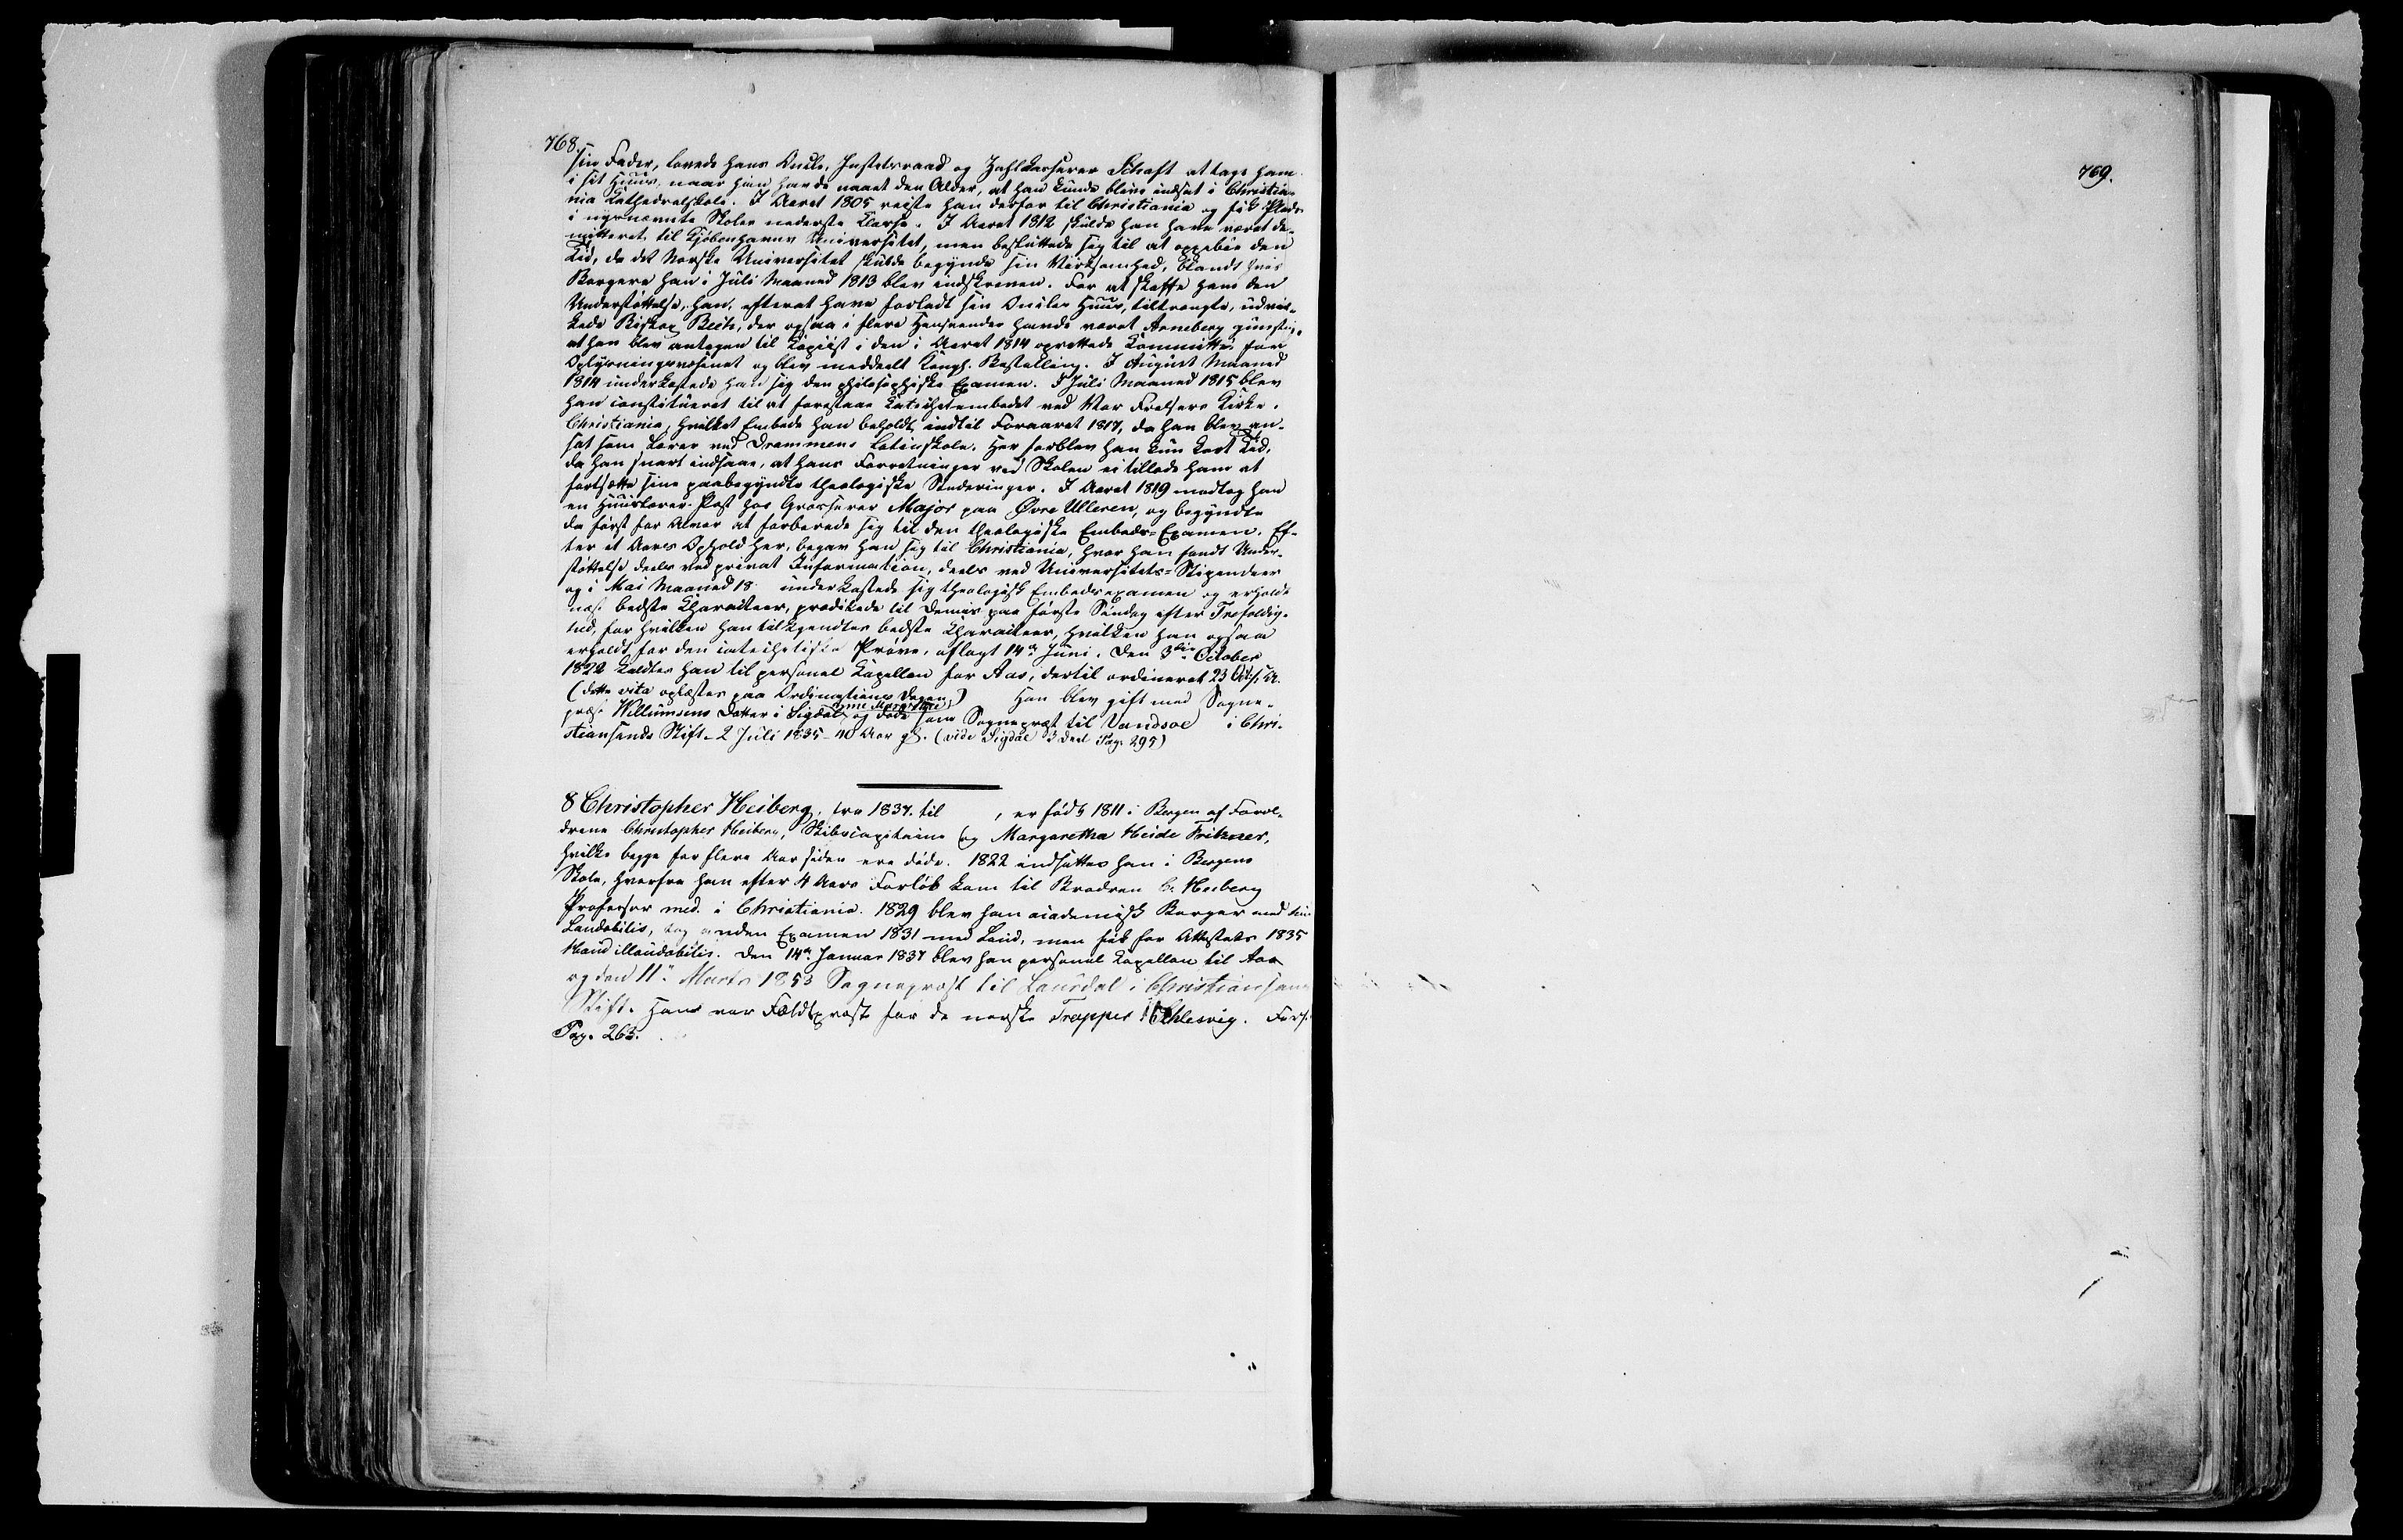 768.
sin Fader, lovede hans Onkle, Justitsraad og Zahlkasserer Schaft at tage ham
i sit Huus, naar han havde naaet den Alder, at han kunde blive indsat i Christia-
nia Kathedralskole. I Aaret 1805 reiste han derfor til Christiania og fik Plads
i nysnævnte Skoles nederste Klasse. I Aaret 1812 skulde han have været de-
mitteret til Kjøbenhavns Universitet, men besluttede sig til at oppebie den
Tid, da det Norske Universitet skulde begynde sin Virksomhed, blandt hvis
Borgere han i Juli Maaned 1813 blev indskreven. For at skaffe ham den
Understøttelse, han, efterat have forladt sin Onkles Huus, tiltrængte, udvir-
kede Biskop Bech, der ogsaa i flere Henseender havde været Arneberg gunstig,
at han blev antagen til Copiist i den i Aaret 1814 oprettede Committé for
Oplysningsvæsenet og blev meddeelt Kongl. Bestalling. I August Maaned
1814 underkastede han sig den philosophiske Examen. I Juli Maaned 1815 blev
han constitueret til at forestaae Catechetembedet ved Vor Frelsers Kirke.
Christiania, hvilket Embede han beholdt indtil Foraaret 1817, da han blev an-
sat som Lærer ved Drammens Latinskole. Her forblev han kun kort Tid,
da han snart indsaae, at hans Forretninger ved Skolen ei tillode ham at
fortsætte sine paabegyndte theologiske Studeringer. I Aaret 1819 modtog han
en Huuslærer-Post hos Grosserer Major paa Øvre Ulleren, og begyndte
da først for Alvor at forberede sig til den theologiske Embeds-Examen. Ef-
ter et Aars Ophold her, begav han sig til Christiania, hvor han fandt Under-
støttelse deels ved privat Information, deels ved Universitets-Stipendier
og i Mai Maaned 18 underkastede sig theologisk Embedsexamen og erholdt
næst bedste Characteer, prædikede til Demis paa første Søndag efter Trefoldig-
hed, for hvilken han tilkjendtes bedste Characteer, hvilken han ogsaa
erholdt for den catechetiske Prøve, aflagt 14de Juni. Den 3die October
1822 kaldtes han til personel Capellan for Aas, dertil ordineret 23 Octbr.
(dette vita oplæstes paa Ordinations Dagen) Han blev gift med Sogne-
præst Willumsens Datter i Sigdal og døde som Sognepræst til Vandsøe i Chri-
stiansands Stift. 2 Juli 1835 - 40 Aar gl. (vide Sigdal 3 Deel Pag. 295)
8 Christopher Heiberg, fra 1837. til , er født 1811 i Bergen af Foræl-
drene Christopher Heiberg, Skibscapitaine og Margaretha Heide Fritzner,
hvilke begge for flere Aar siden ere døde. 1822 indsattes han i Bergens
Skole, hvorfra han efter 4 Aars Forløb kom til Brodren C. Heiberg
Professor med. i Christiania. 1829 blev han academisk Borger med
Laudabilis, tog anden Examen 1831 med Laud, men fik for Attestats 1835
Haud illaudabilis. Den 14de Januar 1837 blev han personel Capellan til Aas
og den 11te Marts 1853 Sognepræst til Laurdal i Christiansands
Stift. Han var Feldtpræst for de norske Tropper i Schlesvig. Forts.
Pag. 263.
769.